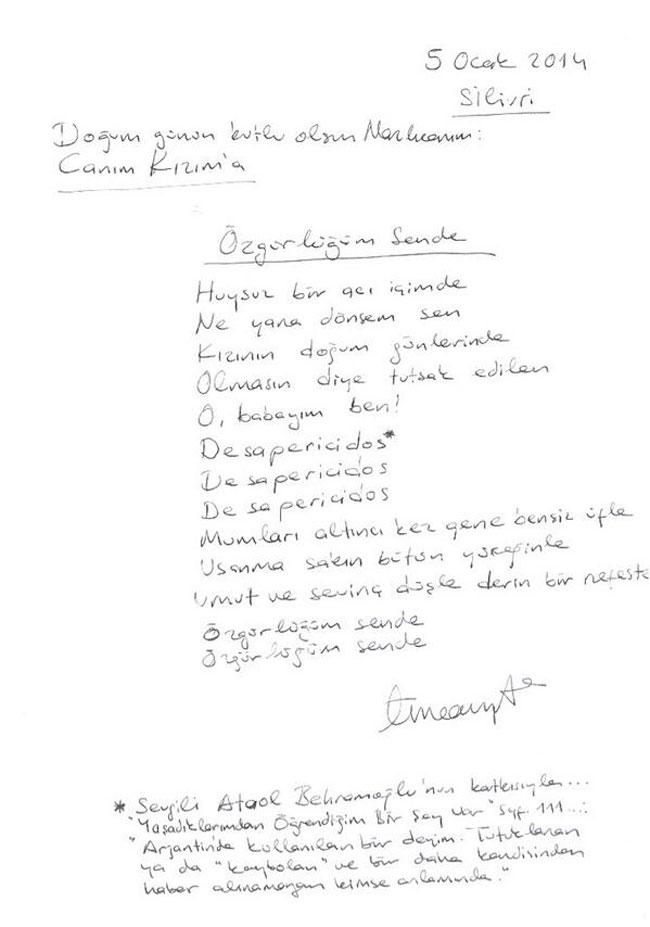 5 Ocak 2014
Silivri
Doğum günün kutlu olsun Nazlıcanım:
Canım Kızım'a
Özgürlüğüm Sende
Huysuz bir acı içimde
Ne yana dönsem sen
Kızının doğum günlerinde
Olmasın diye tutsak edilen
O, babayım ben!
Desapericidos*
Desapericidos
Desapericidos
Mumları altıncı kez gene bensiz üfle
Usanma sakın bütün yüreğinle
Umut ve sevinç düşle derin bir nefeste
Özgürlüğüm sende
Özgürlüğüm sende
* Sevgili Ataol Behramoğlu'nun katkısıyla...
"Yaşadıklarımdan Öğrendiğim Bir Şey Var" Syf. 111...:
"Arjantin'de kullanılan bir deyim. Tutuklanan
ya da "kaybolan" ve bir daha kendisinden
haber alınamayan kimse anlamında."